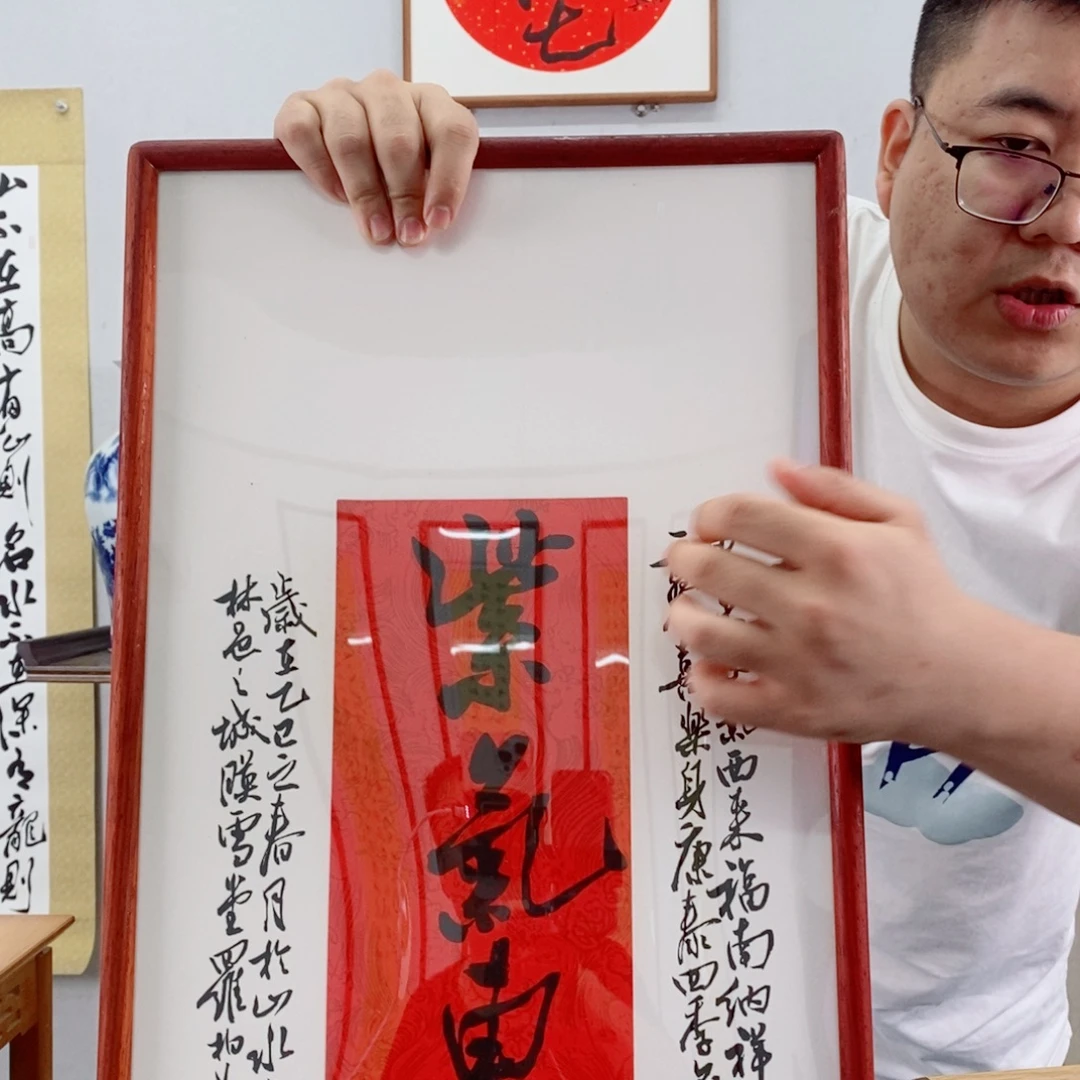 紫氣東
西来福南納祥
喜樂身康泰四季
歲在乙巳之春月於山水
林邑之城暎雪堂羅柏
山不在高有仙則名水不在深有龍則